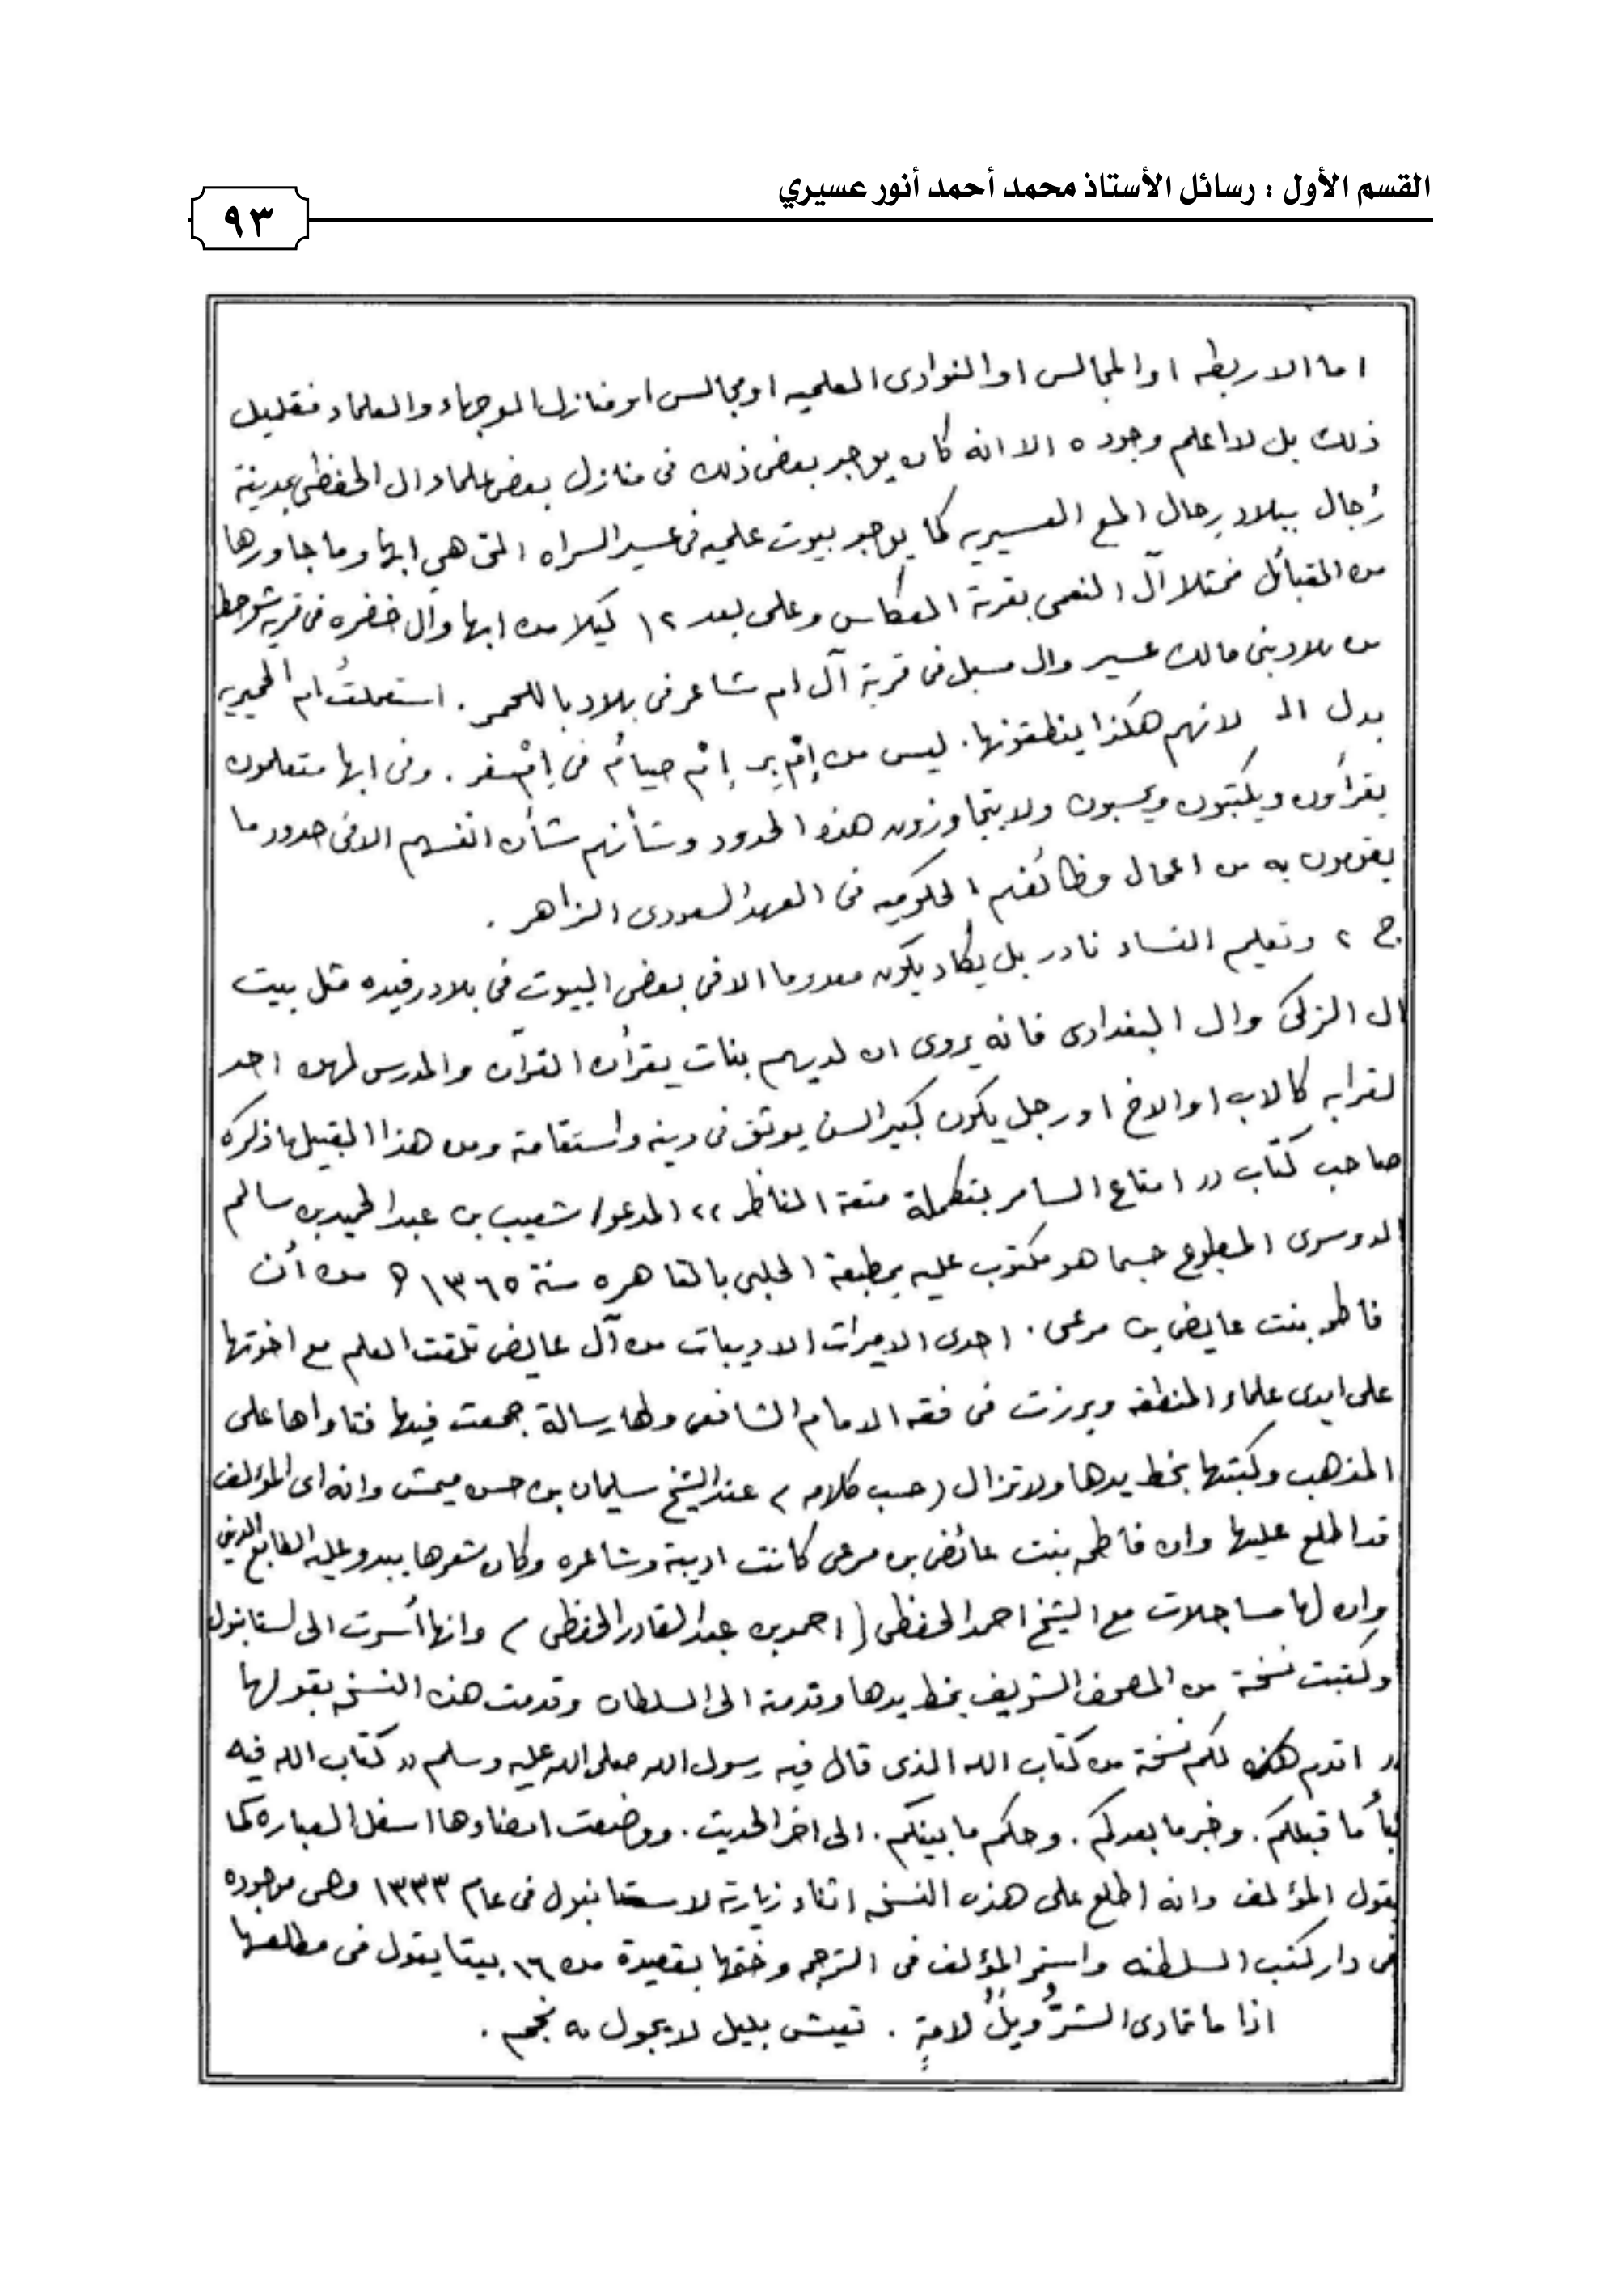 القسم الأول : رسائل الأستاذ محمد أحمد أنور عسيري
٩٣
اما الاربطه او المجالس او النوادى العلميه او مجالس او منازل الوجهاء والعلماء فقليل
ذلك بل لا اعلم وجوده الا انه كان يوجد بعض ذلك فى منازل بعض علماء ال الحفظى بمدينة
رُجال ببلاد رجال المع العسيريه كما يوجد بيوت علميه فى عسير السراه التى هي ابها وما جاورها
من القبائل فمثلا آل النعمى بقرية العكاس وعلى بعد ١٢ كيلا من ابها وآل خضره فى قرية شوحط
من بلاد بنى مالك عسير وال مسبل فى قرية آل ام شاعر فى بلاد باللحمر . استعملتُ ام الحميريه
بدل الـ لانهم هكذا ينطقونها . ليس من إمْ بِر إمْ صيامُ فى إمْ سفر . وفى ابها متعلمون
يقرأون ويكتبون ويحسبون ولا يتجاوزون هذه الحدود وشأنهم شأن انفسهم الا فى حدود ما
يقومون به من اعمال وظائفهم الحكوميه فى العهد السعودى الزاهر .
ج ٢ وتعليم النساء نادر بل يكاد يكون معدوما الا فى بعض البيوت فى بلاد رفيده مثل بيت
ال الزكى وال البغدادى فانه يروى ان لديهم بنات يقرأن القرآن والمدرس لهن احد
لقرابه كالاب او الاخ او رجل يكون كبير السن يوثق فى دينه واستقامته ومن هذا القبيل ما ذكره
صاحب كتاب (( امتاع السامر بتكملة متعة الناظر )) المدعو/ شعيب بن عبد الحميد بن سالم
الدوسرى المطبوع حسبما هو مكتوب عليه بمطبعة الحلبى بالقاهره سنة ١٣٦٥ هـ من أن
فاطمه بنت عايض بن مرعى . احدى الاميرات الاديبات من آل عايض تلقت العلم مع اخوتها
على ايدى علماء المنطقه وبرزت فى فقه الامام الشافعى ولها رسالة جمعت فيها فتاواها على
المذهب وكتبتها بخط يدها ولا تزال ( حسب كلامه ) عند الشيخ سليمان بن حسن ميمش وانه اى المؤلف
قد اطلع عليها وان فاطمه بنت عائض بن مرعى كانت اديبة وشاعره وكان شعرها يبدو عليه الطابع الدينى
وان لها مساجلات مع الشيخ احمد الحفظى ( احمد بن عبد القادر الحفظى ) وانها أسرت الى استانبول
وكتبت نسخة من المصحف الشريف بخط يدها وقدمته الى السلطان وقدمت هذه النسخه بقولها
(( اقدم لكم نسخة من كتاب الله الذى قال فيه رسول الله صلى الله عليه وسلم (( كتاب الله فيه
نبأ ما قبلكم . وخبر ما بعدكم . وحكم ما بينكم . الى اخر الحديث . ووضعت امضاءها اسفل العباره كما
يقول المؤلف وانه اطلع على هذه النسخه اثناء زيارته لاستانبول فى عام ١٣٣٣ وهى موجوده
فى دار كتب السلطنه واستمر المؤلف فى الترجمه وختمها بقصيدة من ١٦ بيتا يقول فى مطلعها
اذا ما تمادى الشرُّ ويلٌ لامةٍ . تعيش بليل لا يجول به نجم .